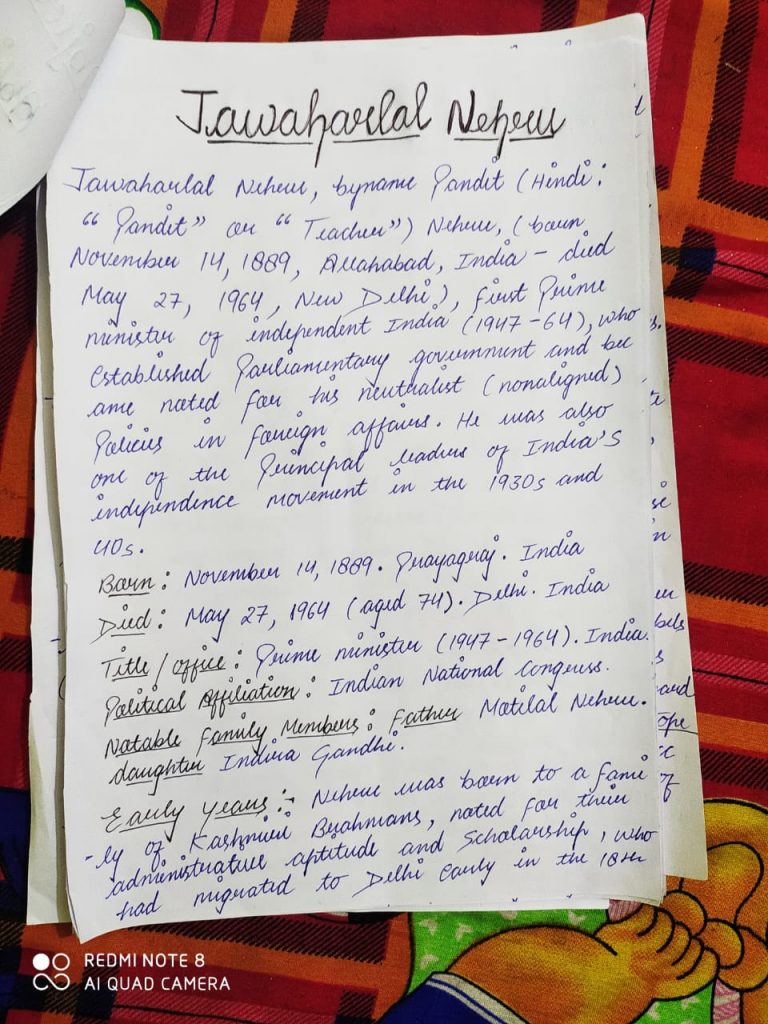 Jawaharlal Nehru
Jawaharlal Nehru, byname Pandit (Hindi:
"Pandit" or "Teacher") Nehru, (born
November 14, 1889, Allahabad, India - died
May 27, 1964, New Delhi), first Prime
minister of independent India (1947-64), who
established Parliamentary government and bec
ame noted for his neutralist (nonaligned)
Policies in foreign affairs. He was also
one of the Principal leaders of India's
independence movement in the 1930s and
40s.
Born: November 14, 1889. Prayagraj. India
Died: May 27, 1964 (aged 74). Delhi. India
Title/office: Prime minister (1947-1964). India.
Political Affiliation: Indian National Congress.
Notable Family Members: Father Motilal Nehru.
daughter Indira Gandhi.
Early years:- Nehru was born to a fami
-ly of Kashmiri Brahmans, noted for their
administrative aptitude and Scholarship, who
had migrated to Delhi early in the 18th
REDMI NOTE 8
AI QUAD CAMERA